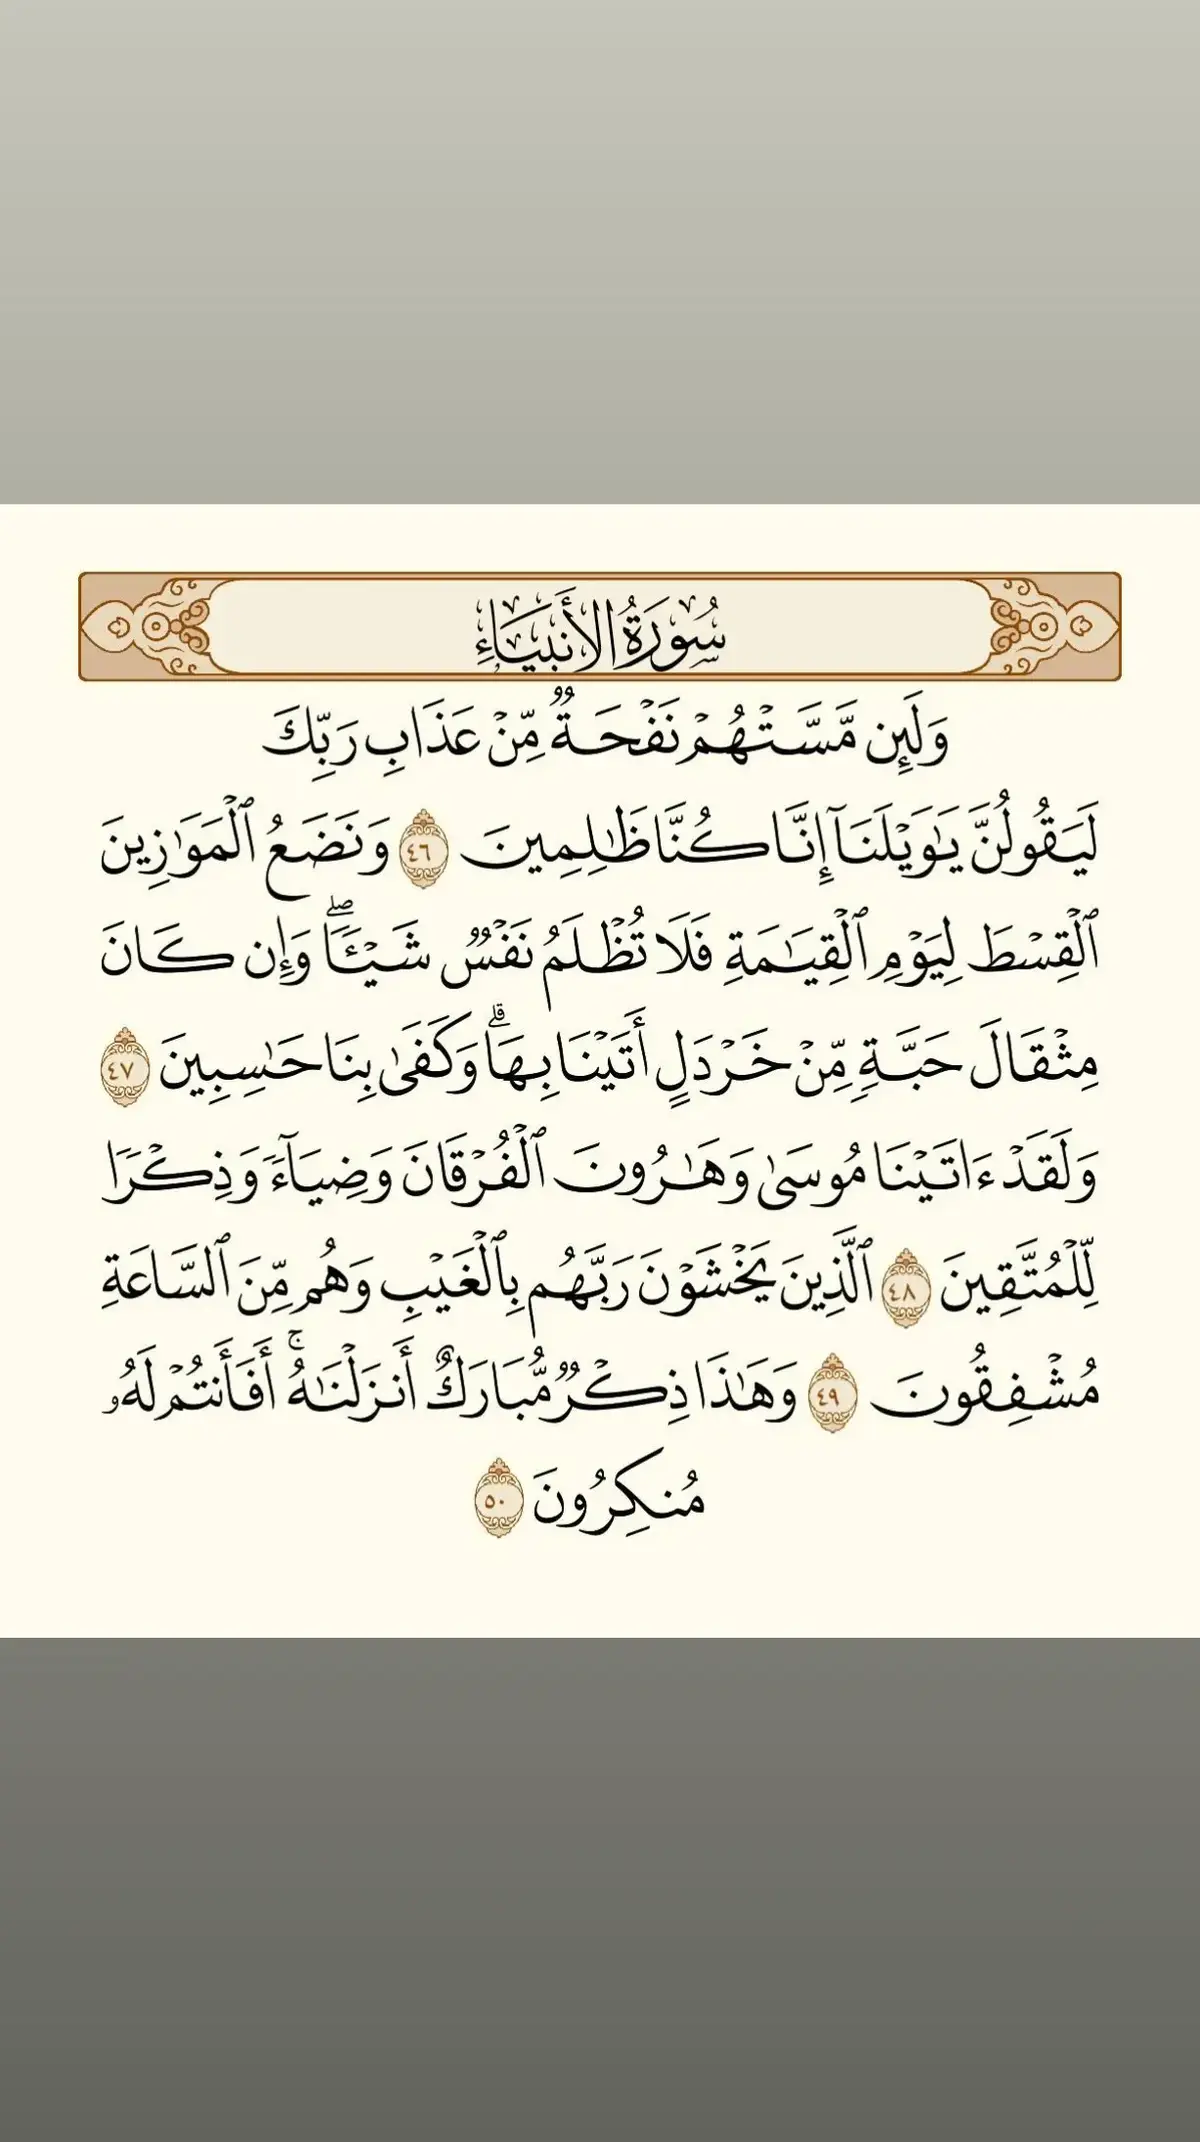 سُورَةُ الأَنبِيَاءِ
وَلَئِن مَّسَّتۡهُمۡ نَفۡحَةٞ مِّنۡ عَذَابِ رَبِّكَ
لَيَقُولُنَّ يَٰوَيۡلَنَآ إِنَّا كُنَّا ظَٰلِمِينَ ٤٦ وَنَضَعُ ٱلۡمَوَٰزِينَ
ٱلۡقِسۡطَ لِيَوۡمِ ٱلۡقِيَٰمَةِ فَلَا تُظۡلَمُ نَفۡسٞ شَيۡـٔٗاۖ وَإِن كَانَ
مِثۡقَالَ حَبَّةٖ مِّنۡ خَرۡدَلٍ أَتَيۡنَا بِهَاۗ وَكَفَىٰ بِنَا حَٰسِبِينَ ٤٧
وَلَقَدۡ ءَاتَيۡنَا مُوسَىٰ وَهَٰرُونَ ٱلۡفُرۡقَانَ وَضِيَآءٗ وَذِكۡرٗا
لِّلۡمُتَّقِينَ ٤٨ ٱلَّذِينَ يَخۡشَوۡنَ رَبَّهُم بِٱلۡغَيۡبِ وَهُم مِّنَ ٱلسَّاعَةِ
مُشۡفِقُونَ ٤٩ وَهَٰذَا ذِكۡرٞ مُّبَارَكٌ أَنزَلۡنَٰهُۚ أَفَأَنتُمۡ لَهُۥ
مُنكِرُونَ ٥٠